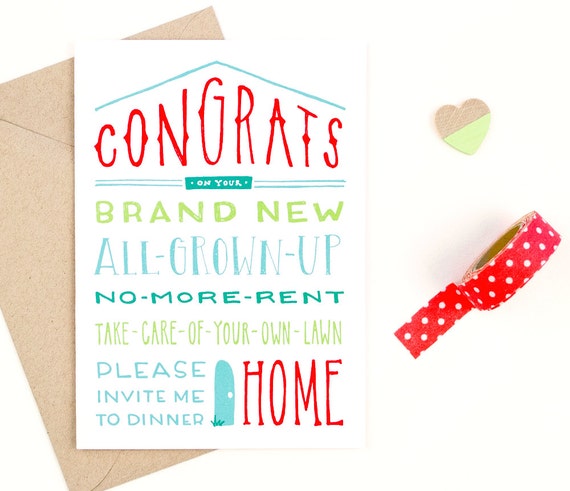 CONGRATS
ON YOUR
BRAND NEW
ALL-GROWN-UP
NO-MORE-RENT
TAKE-CARE-OF-YOUR-OWN-LAWN
PLEASE
INVITE ME
TO DINNER
HOME